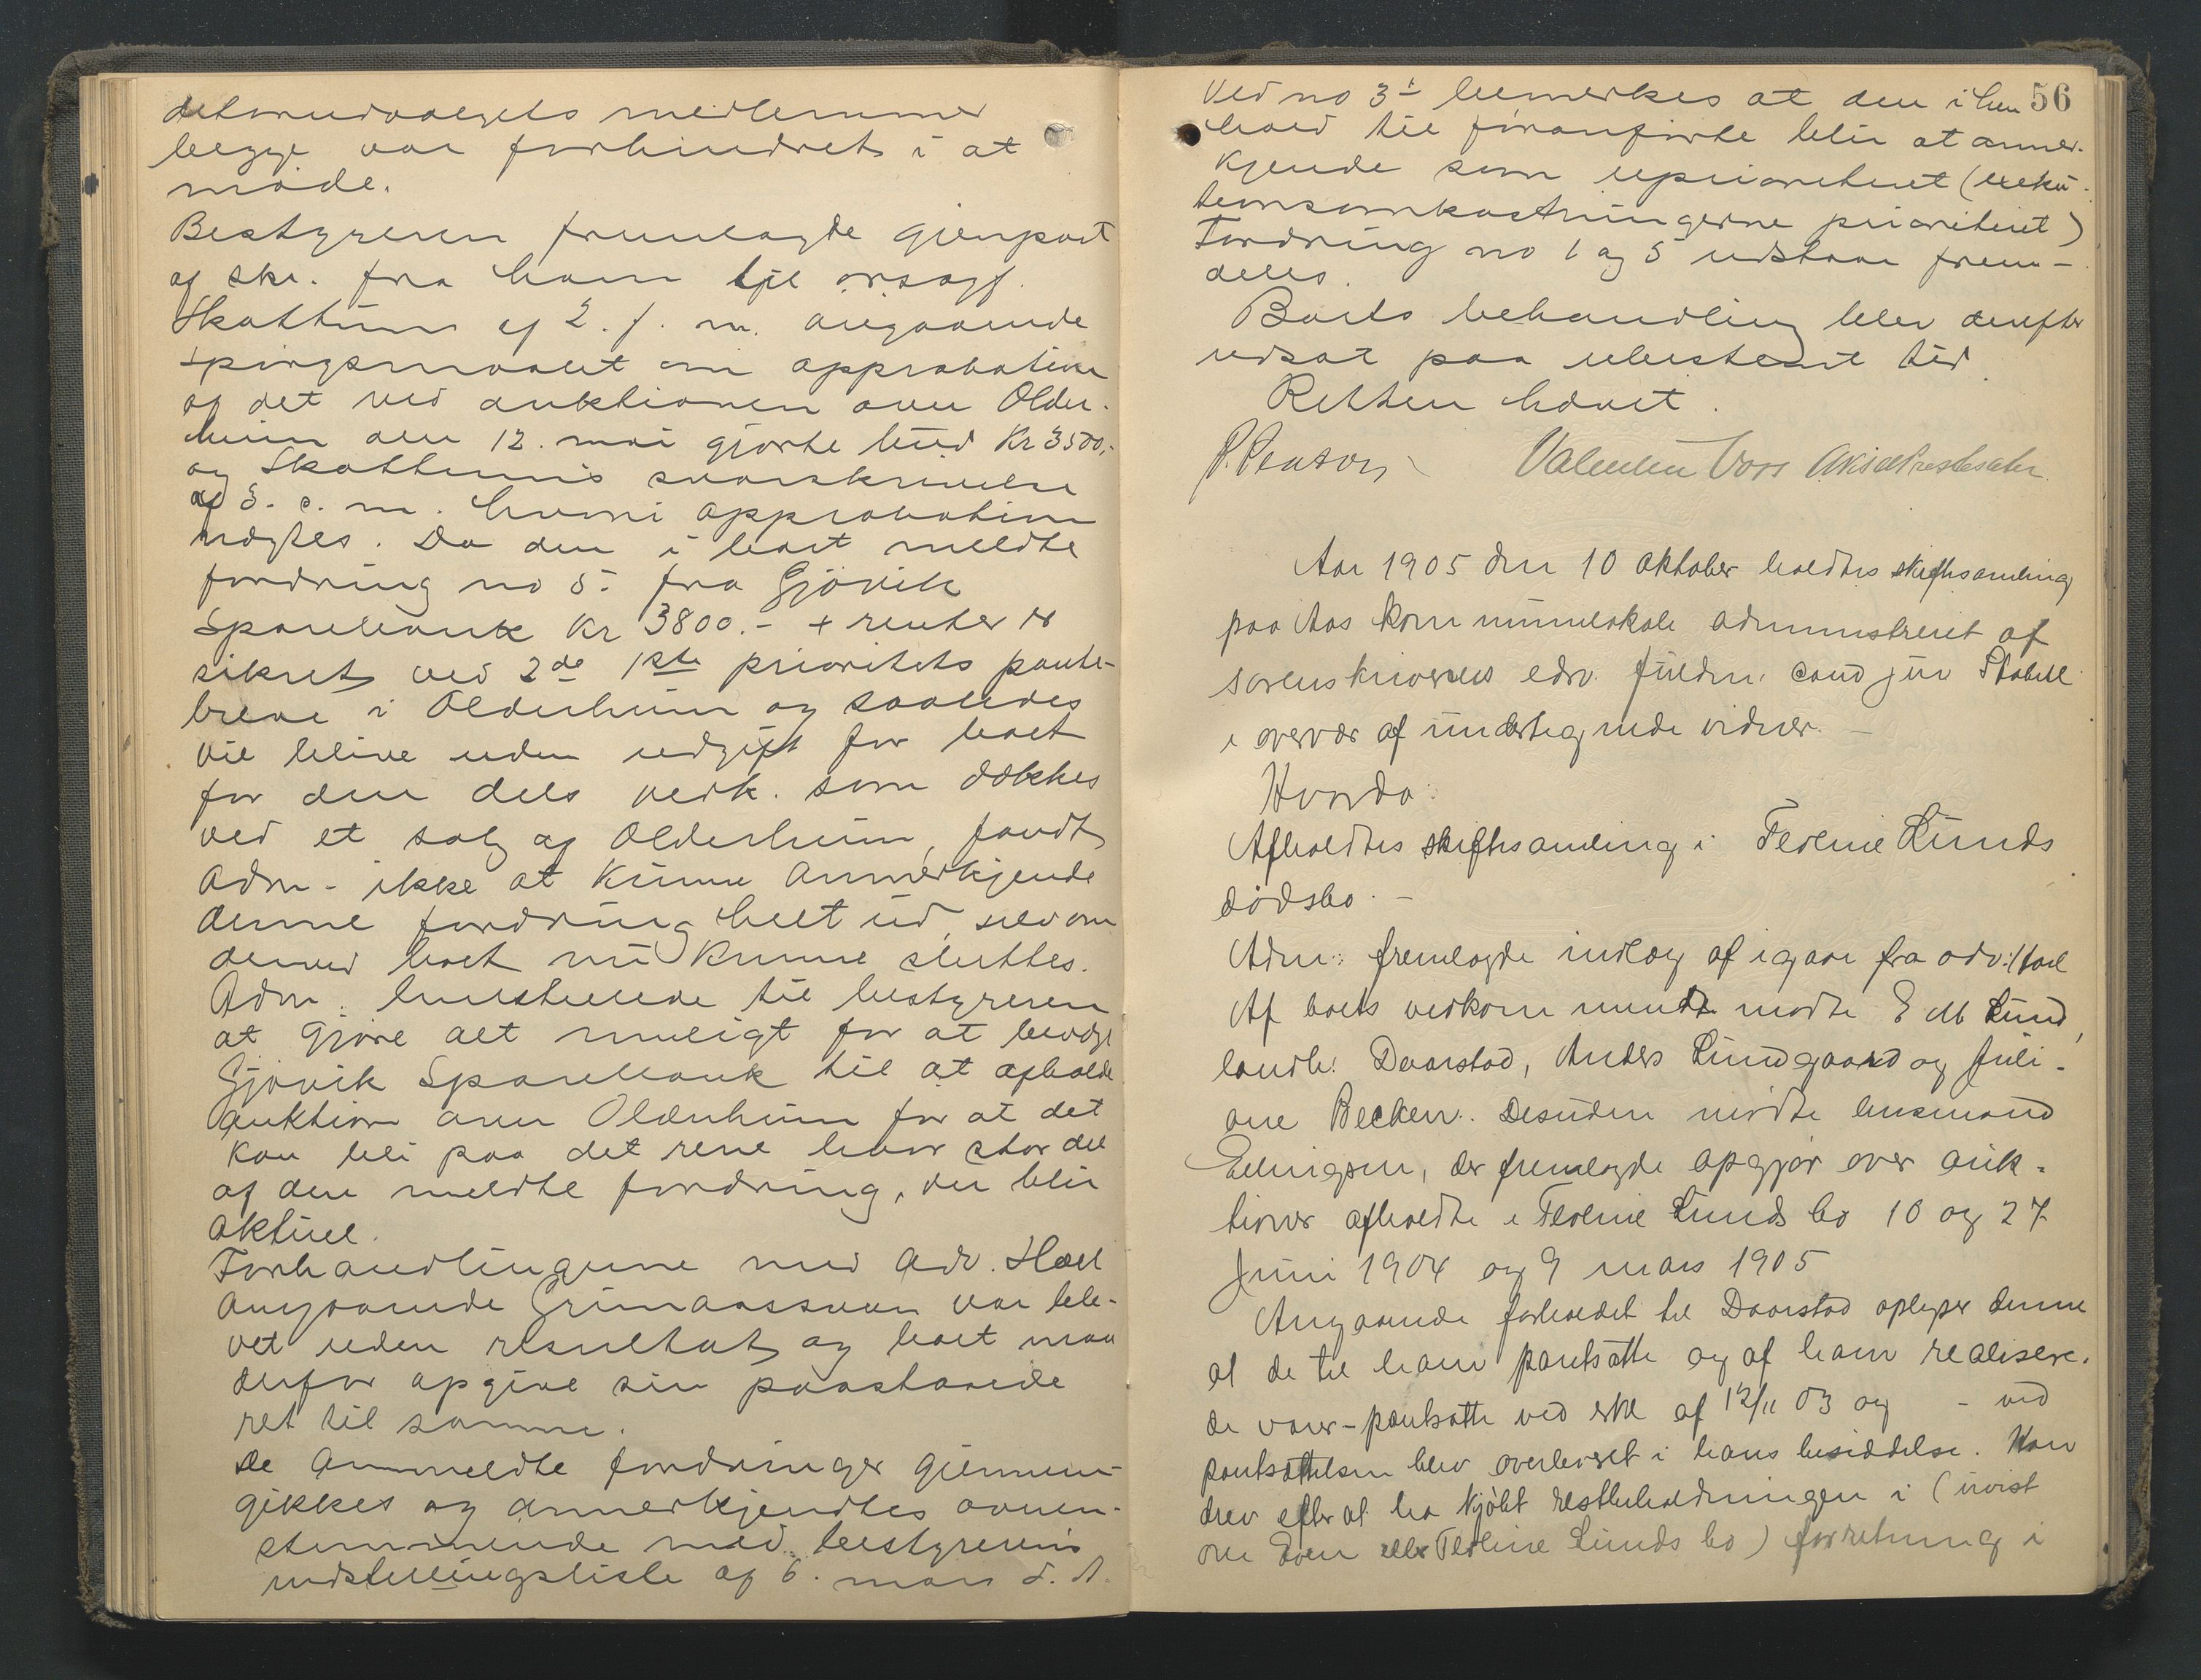 detorudvalgets medlemmer
begge var forhindret i at
møde.
Bestyreren fremlagde gjenpart
af skr. fra ham til orsagf.
Skattum af 2. f. m. angaaende
spørgsmaalet om approbation
af det ved auktionen over Older-
heim den 12. mai gjorte bud Kr 3500,-
og Skattums svarskrivelse
af 3. s. m. hvori approbation
nægtes. Da den i boet meldte
fordring no 5. fra Gjøvik
Sparebank Kr 3800.- + renter er
sikret ved 2de 1ste prioritets pante-
breve i Olderheim og saaledes
vil blive uden udgift for boet
for den dels vedk. som dækkes
ved et salg af Olderheim, fandt
Adm. ikke at kunne anmerkjende
denne fordring helt ud, selv om
derved boet nu kunne sluttes.
Adm. henstillede til bestyreren
at gjøre alt muligt for at bevæge
Gjøvik Sparebank til at afholde
auktion over Olderheim for at det
kan bli paa det rene hvor stor del
af den meldte fordring, der blir
aktuel.
Forhandlingerne med adv. Hoel
angaaende Grimaassveen var ble-
vet uden resultat og boet maa
derfor opgive sin paastaaede
ret til samme.
De anmeldte fordringer gjennem-
gikkes og anmerkjendtes overen-
stemmende med bestyrerens
indstillingsliste af 6. mars d. A.
Ved no 3 bemerkes at den i hen 56
hold til foranførte blir at anner-
kjende som uprioriteret (exeku-
tionsomkostningerne prioriteret)
Fordring no 1 og 5 udstaar frem-
deles.
Boets behandling blev derefter
udsat paa ubestemt tid
Retten hævet.
P. Paulson Valentin Voss
Aar 1905 den 10 oktober holdtes skiftesamling
paa Aas kommunelokale administreret af
sorenskriverens edsv. fuldm. cand jur
i overvær af undertegnede vidner. -
Hvorda:
Afholdtes skiftesamling i Terline Lunds
dødsbo. -
Adm: fremlagde indlæg af igaar fra adv: Hoel
Af boets vedkommende mødte E M Lund,
landh. Daarstad, Anders Lundgaard og Juli-
ane Becken. Desuden mødte lensmand
Ellingsen, der fremlagde opgjør over auk-
tioner afholdte i Terline Lunds bo 10 og 27
Juni 1904 og 9 mars 1905
Angaaende forholdet til Daarstad oplyser denne
at de til ham pantsatte og af ham realisere-
de varer - pantsatte ved skr af 12/11 03 og - ved
pantsættelsen blev overleveret i hans besiddelse. Han
drev efter at ha kjøbt restbeholdningen i (uvist
om Even eller Terline Lunds bo) forretning i